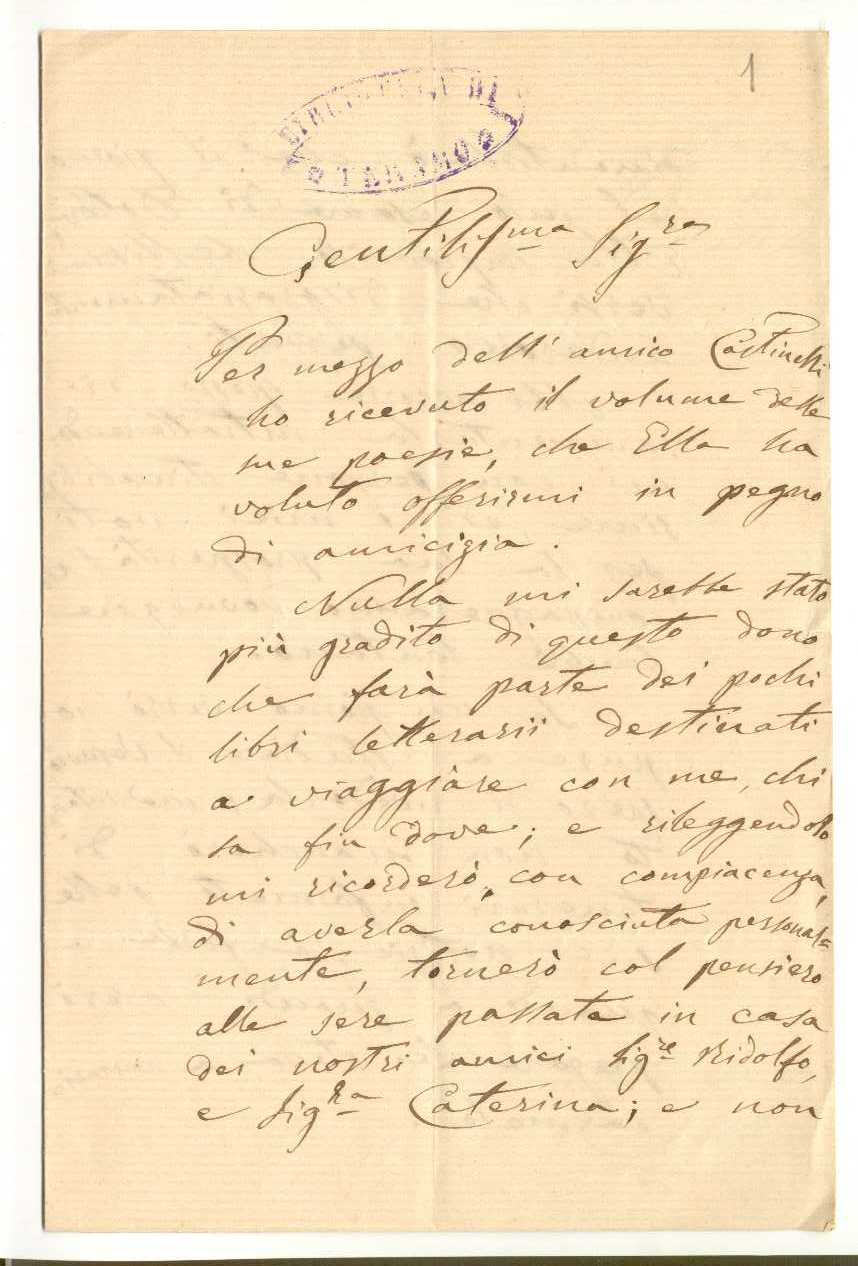 1
DI
TERAMO
Gentiliss.ma Sig.ra
Per mezzo dell'amico
ho ricevuto il volume delle
sue poesie, che Ella ha
voluto offerirmi in pegno
di amicizia.
Nulla mi sarebbe stato
più gradito di questo dono
che farà parte dei pochi
libri letterarii destinati
a viaggiare con me, chi
sa fin dove; e rileggendolo
mi ricorderò, con compiacenza,
di averla conosciuta personal=
mente, tornerò col pensiero
alle sere passate in casa
dei nostri amici Sig.re Ridolfo,
e Sig.ra Caterina; e non